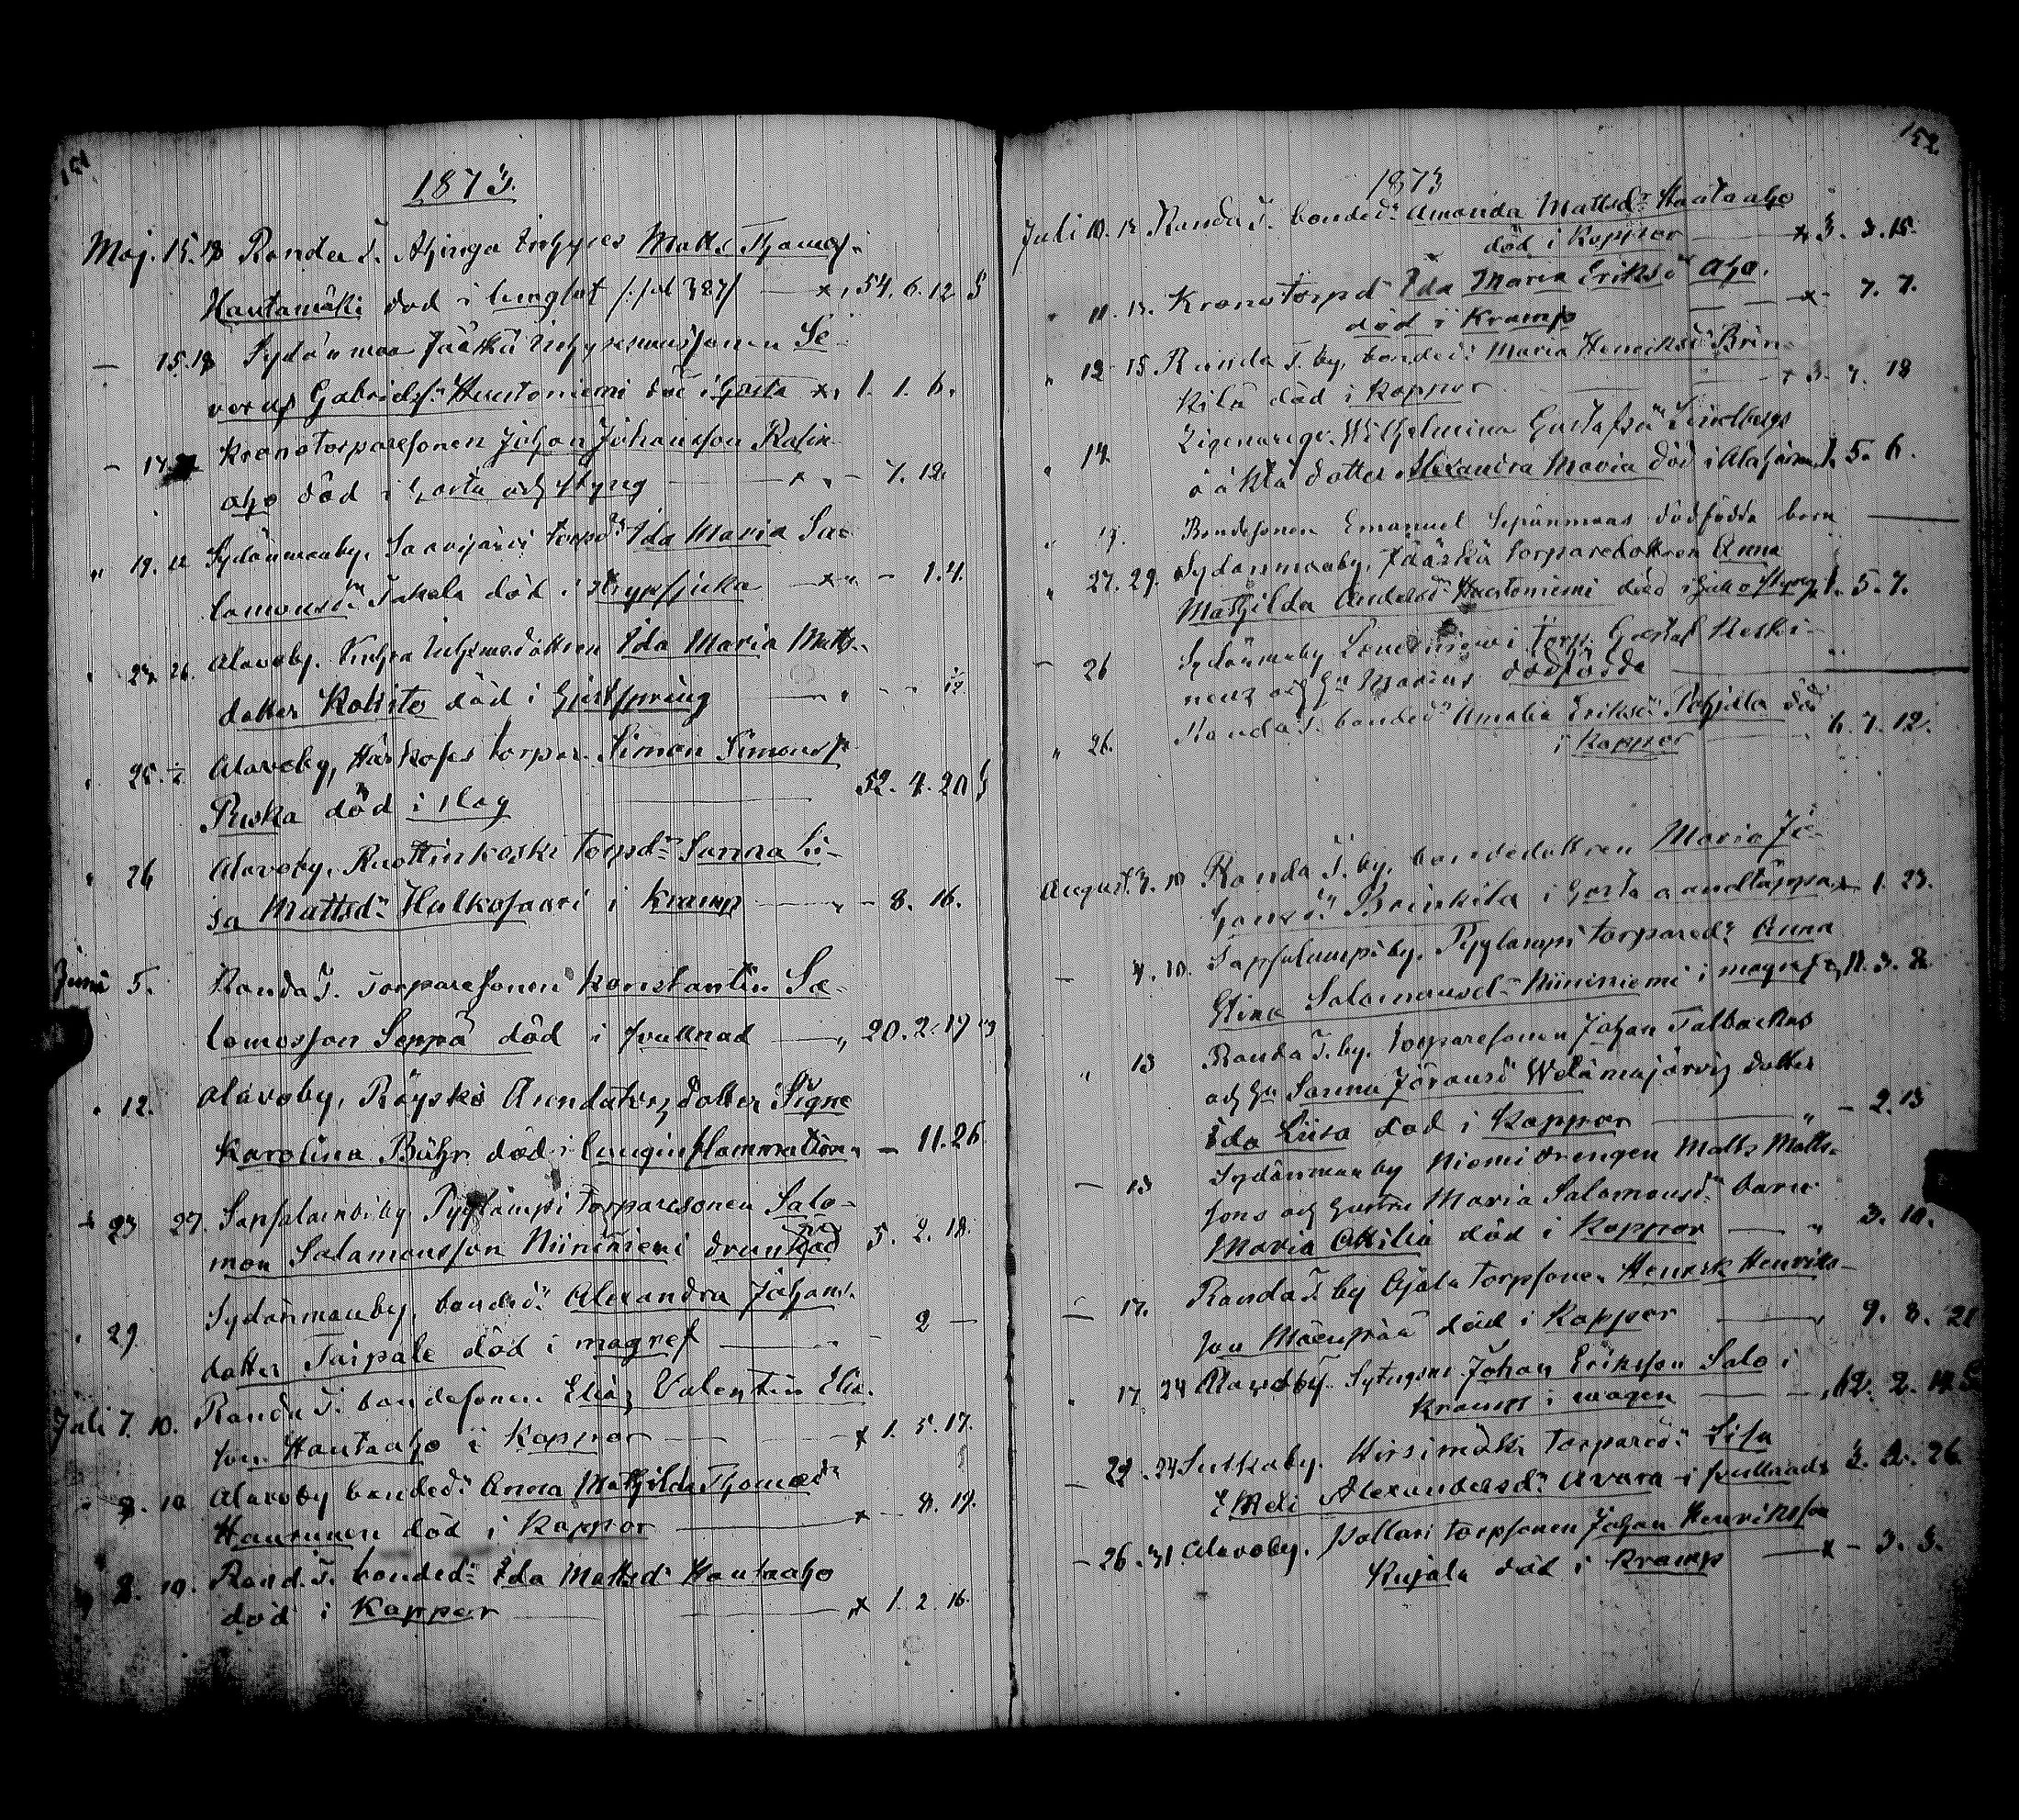 151
1873.
Maj. 15. 18 Randa T. Ahinga Inhyses Matts Thomas-
Hautamäki död i lungsot /: fol 387/ — x, 54. 6. 12
— 15. 18 Sydänmaa Jääskä Inhysesmansonen Se-
verus Gabrielss. Huutoniemi död i Hosta x, 1. 1. 6.
— 17. Kronotorparesonen Johan Johansson Rasin-
aho död i hosta och styng — x „ - 7. 12.
„ 19. Sydänmaaby, Saarijärvi torpd. Ida Maria Sa-
lomonsdr Takala död i strypsjuka — x „ - 1. 4.
„ 23. 26. Alavoby. Inhysesmadottren Ida Maria Matts-
dotter Kokisto död i Hjertspräng — „ - - 1/12
„ 25. Alavoby, Härkösas torpar. Simon Simonss.
Ruska död i slag — 52. 4. 20
„ 26 Alavoby, Ruottinkoski torpd. Sanna Li-
sa Mattsd. Halkosaari i kramp — „ - 8. 16.
Juni 5. Randa T. Torparesonen Konstantin Sa-
lomosson Seppä död i svullnad — „ 20. 2. 19
„ 12. Alavoby, Röyskö Arendators dotter Signe
Karolina Bühr död i lunginflammation „ - 11. 26
„ 23 27. Sapsalambi by Pyylampi Torparesonen Salo-
mon Salamonsson Niininiemi drunknad 5. 2. 18.
„ 29 Sydänmaaby, bonded. Alexandra Johans-
dotter Taipale död i magref — „ - 2 —
Juli 7. 10. Randa T. bondesonen Elias Valentin Elia-
son Hautaaho i Koppor — x 1. 5. 17.
„ 8. 10 Alavoby bonded. Anna Mathilda Thomasdr
Haurunen död i Koppor — x - 8. 19.
„ 8. 10. Rand. T. bonded. Ida Mattsd. Hautaaho
död i Koppor — „ x 1. 2. 16.
152
1873
Juli 10. 13. Randa T. bonded. Amanda Mattsdr Hautaaho
död i Koppor — x 3. 3. 15.
„ 11. 13. Kronotorpd. Ida Maria Eriksdr Aho.
död i Kramp — x - 7. 7.
„ 12 15 Randa T. by, bonded. Maria Henriksdr Brin-
kilä död i koppor — x 3. 7. 18
„ 14. Wilhelmina Gustafsdr Lindbergs
oäkta dotter Alexandra Maria död i Alahärmä 1. 5. 6.
„ 19. Bondesonen Emanuel Sepänmaas dödfödda barn —
„ 27. 29. Sydänmaaby, Jääskä torparedottren Anna
Mathilda Andersdr Huutoniemi död i 1. 5. 7.
— 26 Sydänmaby torp. Gustaf Keski-
nens och Hu Marias dödfödda —
„ 26. Randa T. bonded. Amalia Eriksdr Pohjola död
i Koppor — 6. 7. 12.
August. 3. 10 Randa T. by, bondedottren Maria Jo-
hansdr Brinkila i hosta o andtäppa x 1. 23.
— 4. 10. Sapsalampiby, Pyylampi torpared. Anna
Stina Salamonsd. Niininiemi i magref 11. 3. 8.
„ 13 Randa T. by. torparesonen Johan Talbackas
och Hu Sanna Jöransdr Wdämajärvis dotter
Ida Liisa död i Koppor — „ - 2. 13
— 13 Sydänmaaby Niemi drengen Matts Matts-
sons och hustru Maria Salomonsdr barn
Maria Ottilia död i Koppor — „ 3. 10.
— 17. Randa T. by Ojala torpsonen Henrik Henriks-
son Mäenpää död i Koppor — 9. 8. 21
„ 17 24 Alavoby. Sytngsm. Johan Eriksson Salo i
Kramp i magen — „ 62. 2. 14
— 22. 24 Sulkaby. Hirsimäki torpared. Lisa
Alexandersd. Avara i svullnad 3. 2. 26.
— 26. 31 Alavoby. Pollari torpsonen Johan Henriksson
Kujala död i Kramp — x - 3. 3.